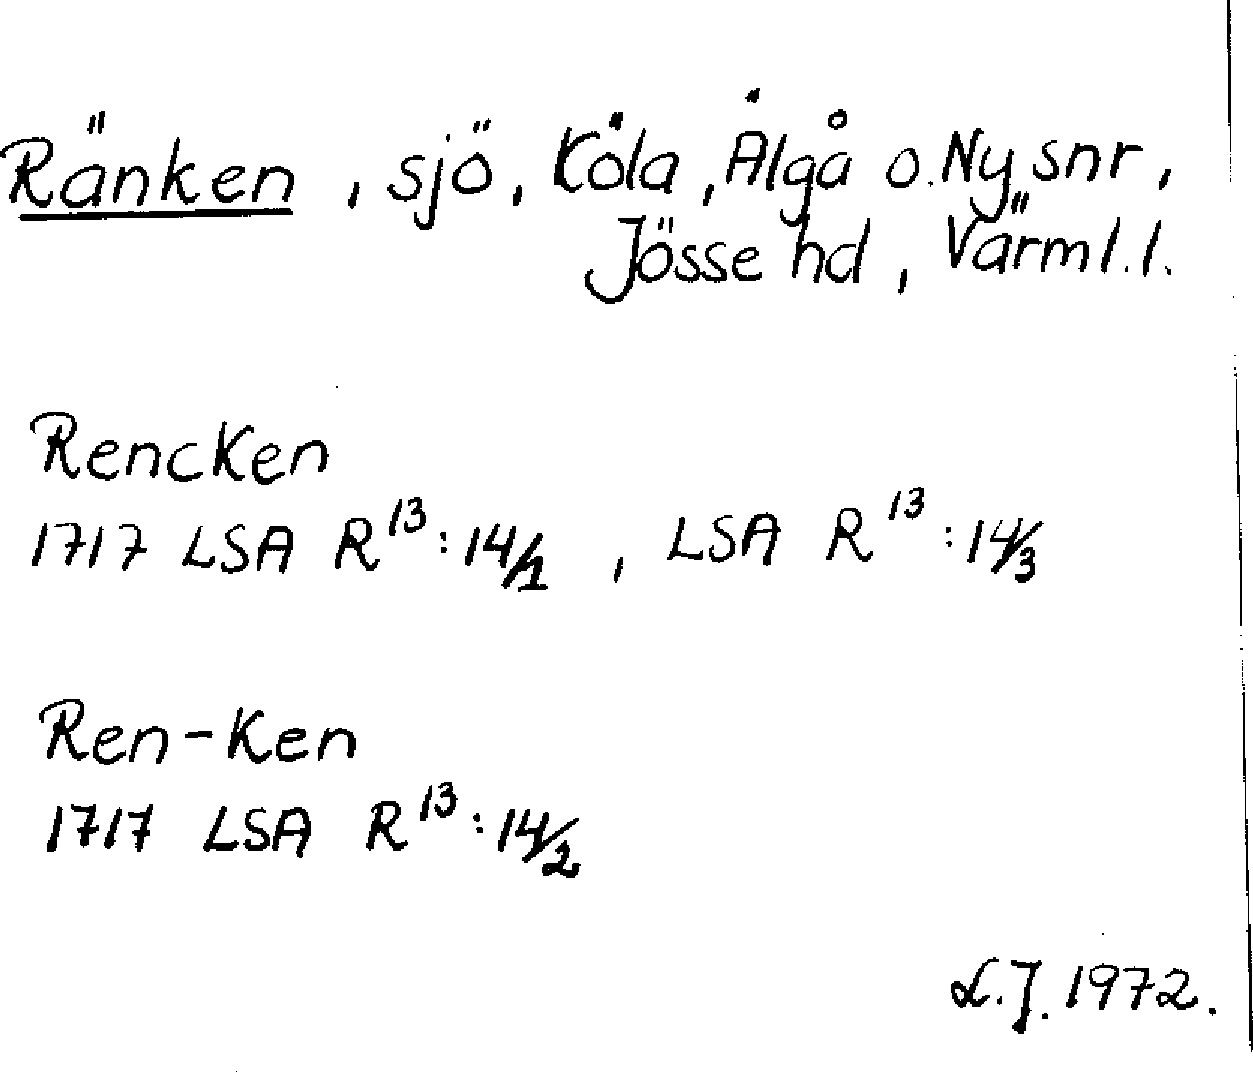 Ränken, sjö, Köla, Älgå o. Ny snr,
Jösse hd, Värml. l.
Rencken
1717 LSA R¹³:14/1, LSA R¹³:14/3
Ren-ken
1717 LSA R¹³:14/2
L.J. 1972.